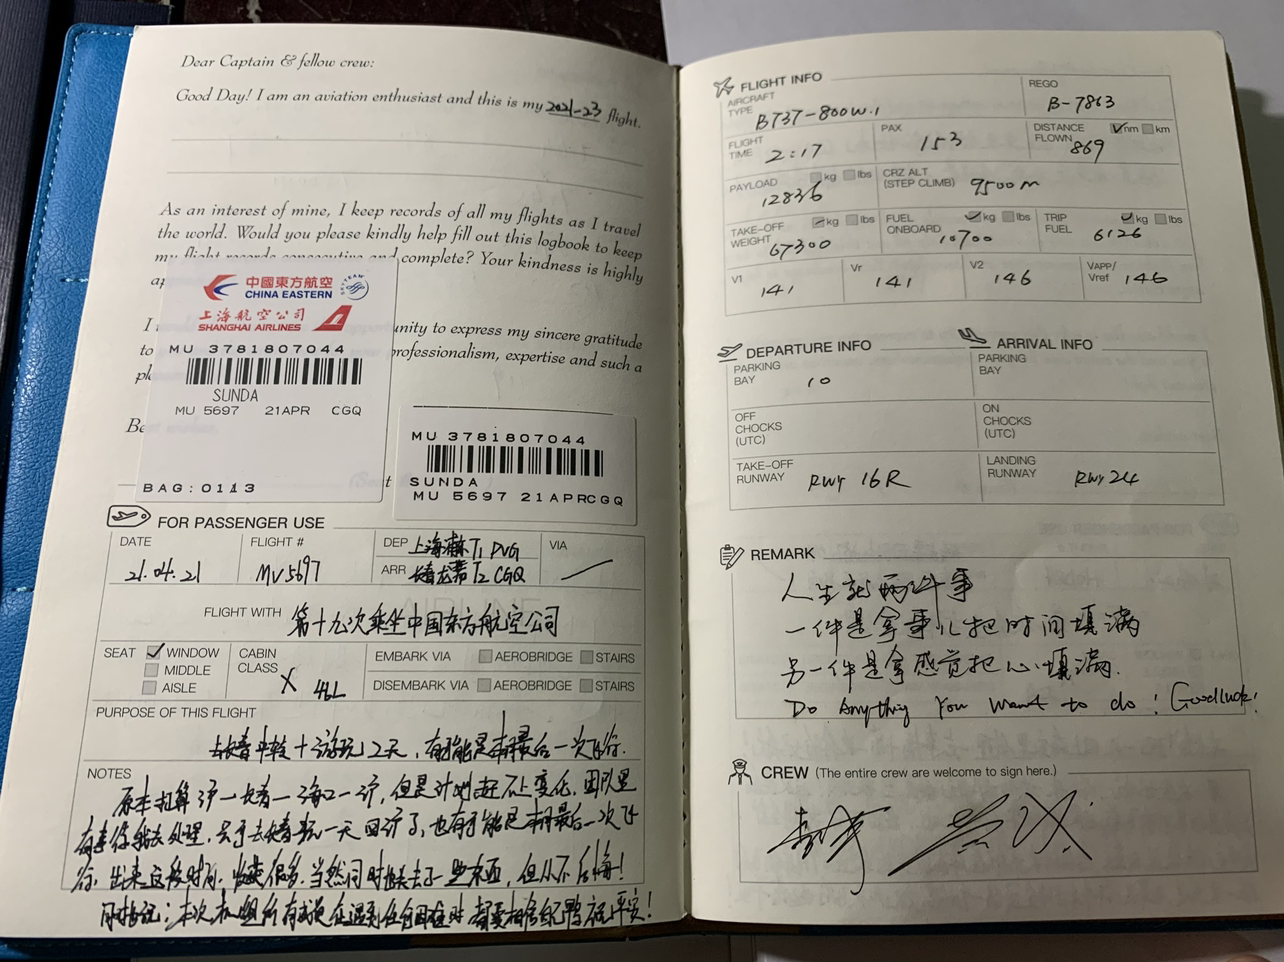 Dear Captain & fellow crew:
Good Day! I am an aviation enthusiast and this is my 2021-23 flight.
As an interest of mine, I keep records of all my flights as I travel
the world. Would you please kindly help fill out this logbook to keep
my flight records consecutive and complete? Your kindness is highly
中國東方航空
CHINA EASTERN
SKYTEAM
上海航空公司
SHANGHAI AIRLINES
MU 3781807044
SUNDA
MU 5697 21APR CGQ
BAG:0113
I
unity to express my sincere gratitude
to
professionalism, expertise and such a
Be
MU 3781807044
SUNDA
MU 5697 21APRCGQ
FOR PASSENGER USE
DATE 21.04.21
FLIGHT # MU5697
DEP 上海浦东T1 PVG
ARR 长春龙嘉T2 CGQ
VIA /
FLIGHT WITH 第十九次乘坐中国东方航空公司
SEAT WINDOW MIDDLE AISLE
CABIN CLASS X 46L
EMBARK VIA AEROBRIDGE STAIRS
DISEMBARK VIA AEROBRIDGE STAIRS
PURPOSE OF THIS FLIGHT
去长春中转+游玩2天，有可能是本月最后一次飞行.
NOTES
原本打算沪一长春一海口一沪，但是计划赶不上变化，团队里
有事你我去处理，只了去长春玩一天回沪了，也有可能是本月最后一次飞
行. 出来这段时间，收获很多，当然同时也失去了一些东西，但从不后悔!
同时标记：本次机组所有成员在遇到任何困难时 都要相信 平安!
FLIGHT INFO
AIRCRAFT TYPE B737-800W.1
REGO B-7863
FLIGHT TIME 2:17
PAX 153
DISTANCE FLOWN nm km 869
PAYLOAD kg lbs 12836
CRZ ALT (STEP CLIMB) 9500m
TAKE-OFF WEIGHT kg lbs 67300
FUEL ONBOARD kg lbs 10700
TRIP FUEL kg lbs 6126
V1 141
Vr 141
V2 146
VAPP/Vref 146
DEPARTURE INFO
ARRIVAL INFO
PARKING BAY 10
PARKING BAY
OFF CHOCKS (UTC)
ON CHOCKS (UTC)
TAKE-OFF RUNWAY RWY 16R
LANDING RUNWAY RWY 24
REMARK
人生就两件事
一件是拿事儿把时间填满
另一件是拿感觉把心填满.
Do Anything You Want to do! Goodluck!
CREW (The entire crew are welcome to sign here.)